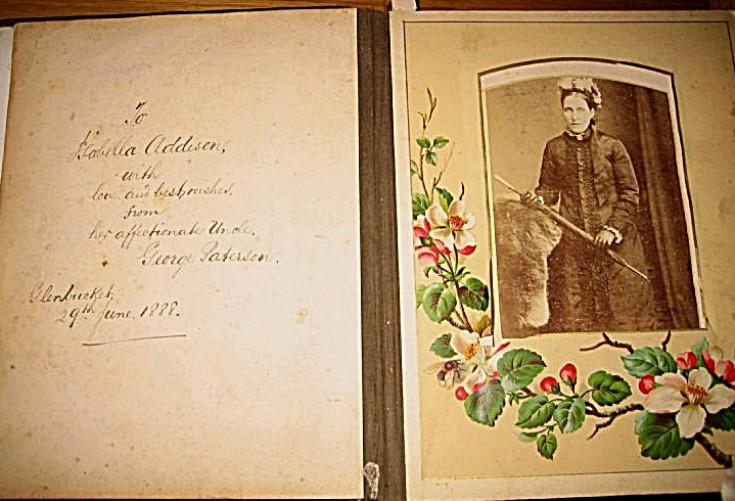 To
Isobella Addison,
with
love and best wishes,
from
her affectionate Uncle,
George Paterson.
Glenbucket,
29th June, 1888.